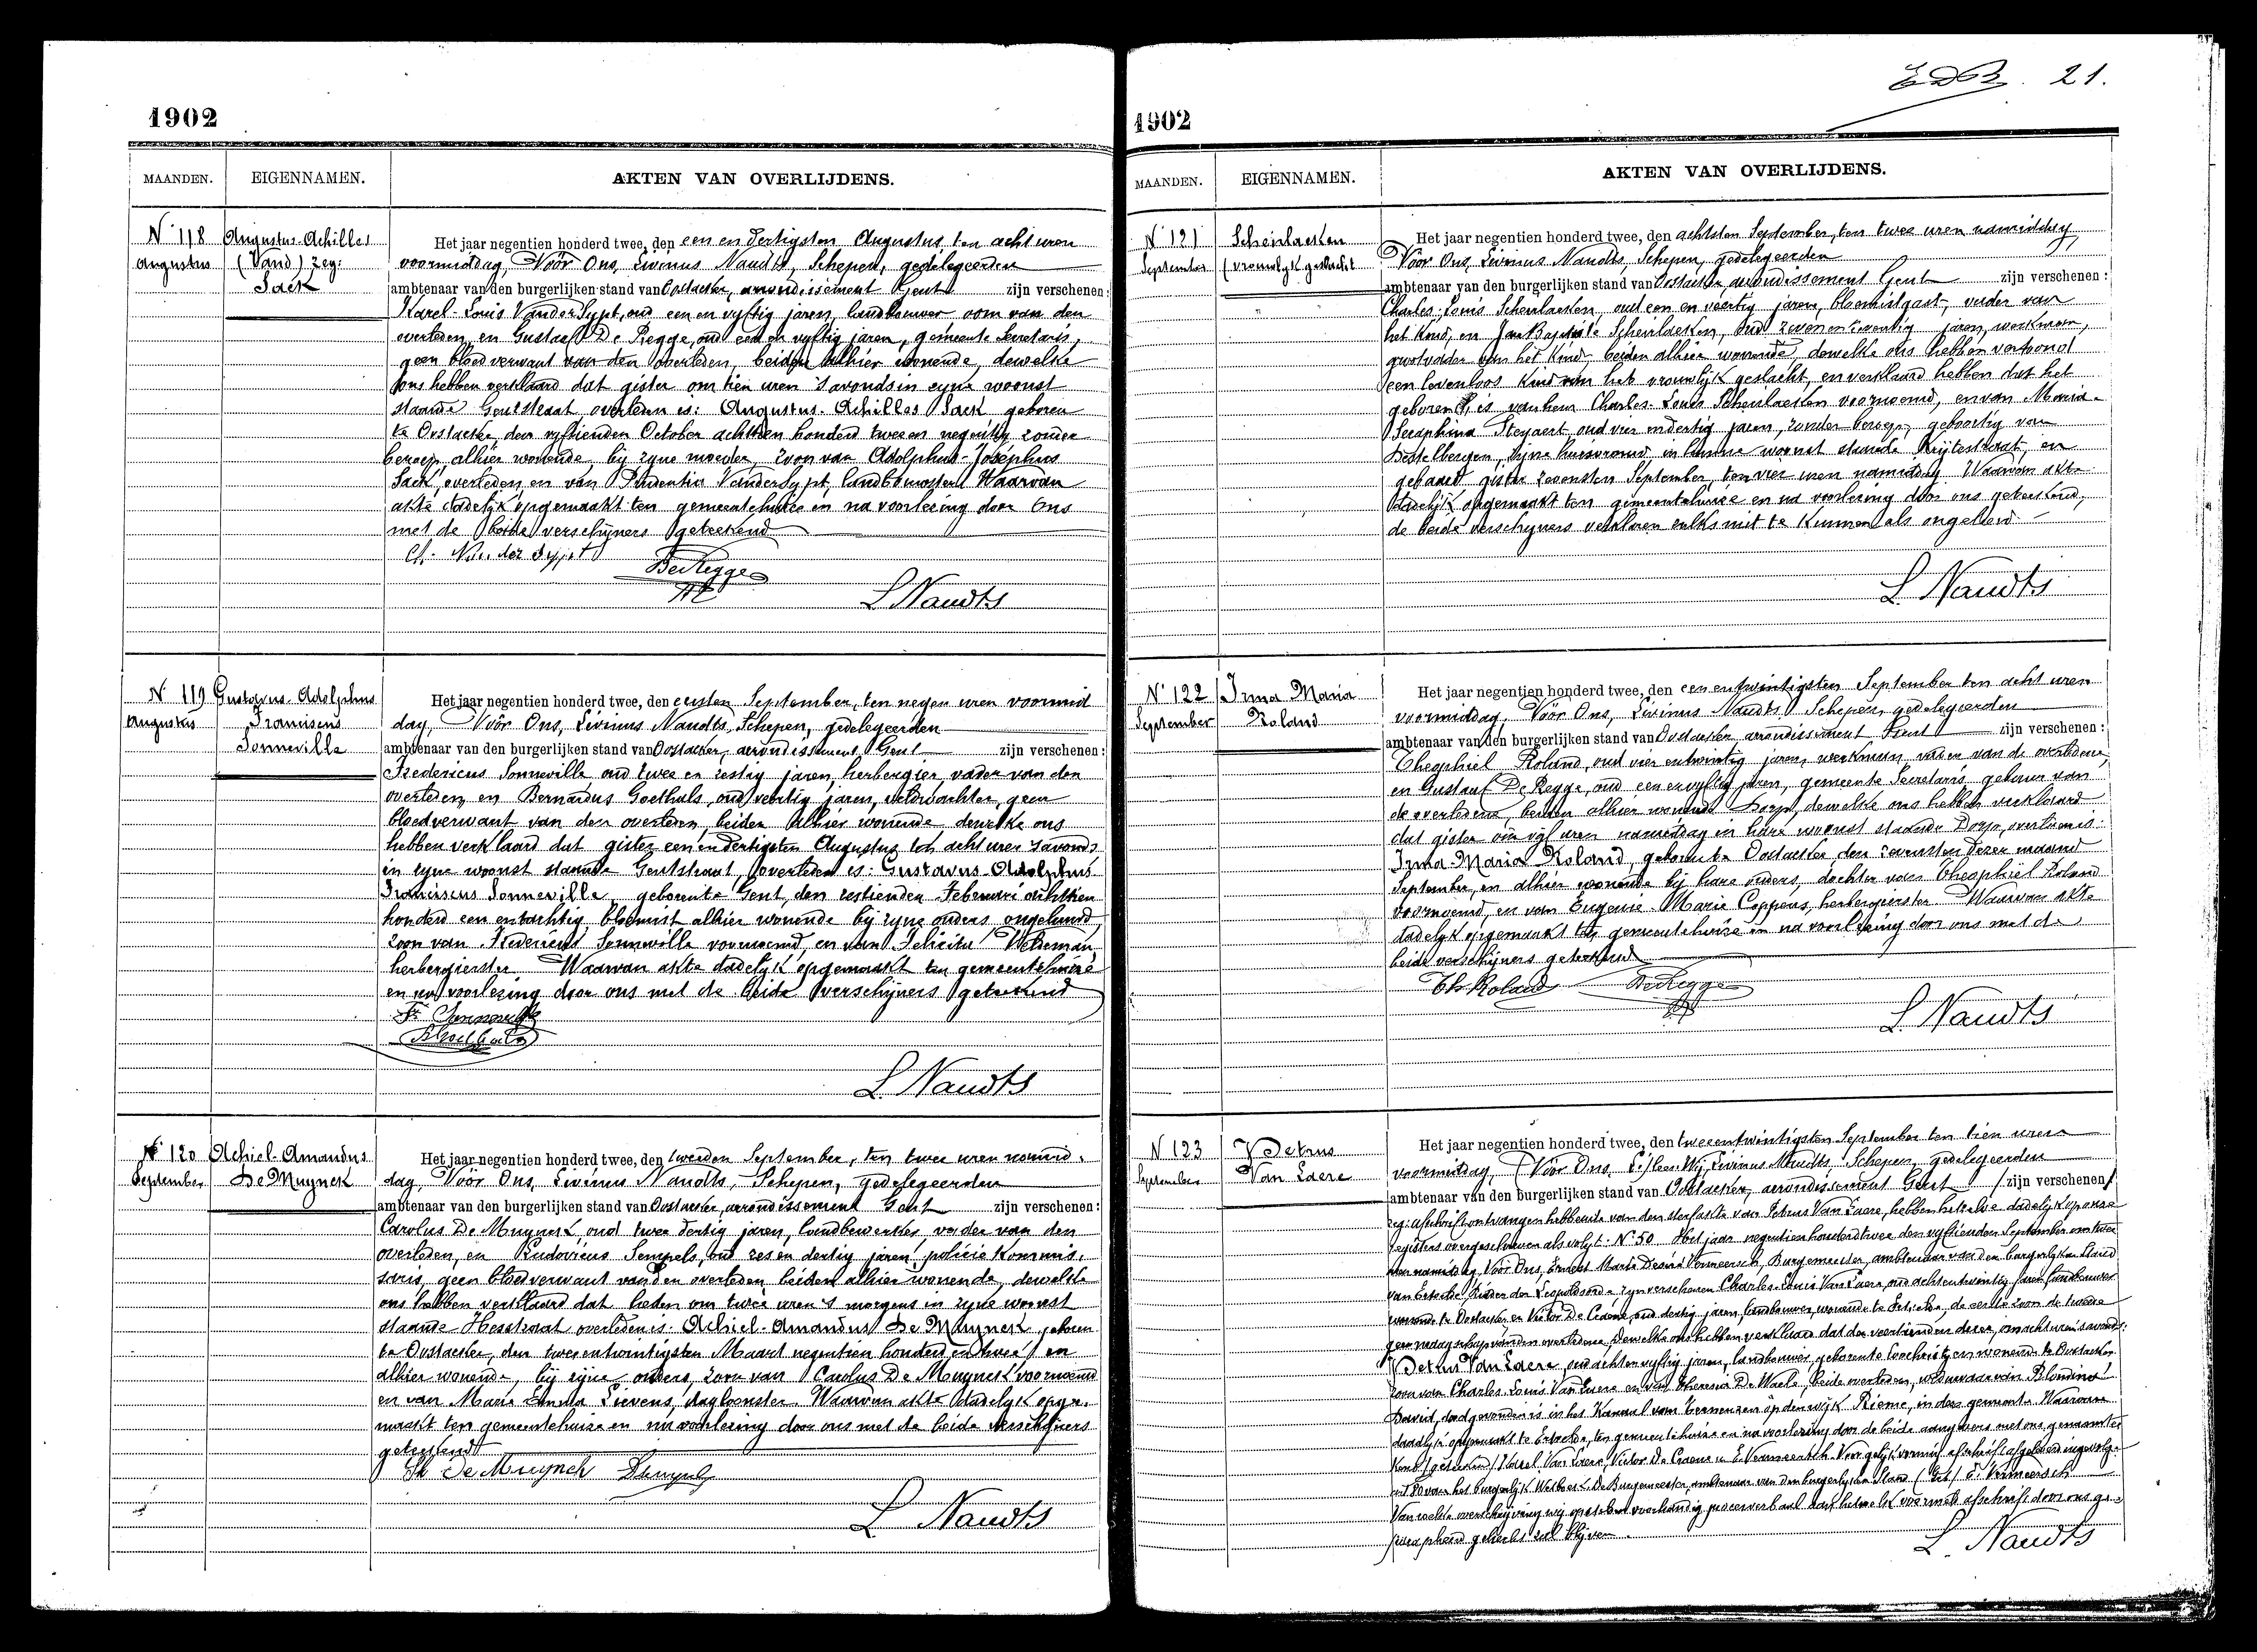 1902
MAANDEN.
EIGENNAMEN.
AKTEN VAN OVERLIJDENS.
N° 118
Augustus
Augustus-Achilles
(Vand) zeg:
Sack
Het jaar negentien honderd twee, den een en dertigsten Augustus ten acht uren
voormiddag, Vóór Ons, Livinus Naudts, Schepen, gedelegeerden
ambtenaar van den burgerlijken stand van Oostacker, arrondissement Gent zijn verschenen:
Karel-Louis VanderSypt, oud een en vyftig jaren, landbouwer oom van den
overleden, en Gustaef De Regge, oud een en vyftig jaren, gemeente Secretaris,
geen bloedverwant van den overleden, beiden alhier wonende, dewelke
ons hebben verklaard dat gister om tien uren 's avonds in zyne woonst
staande Gentstraat, overleden is: Augustus-Achilles Sack geboren
te Oostacker, den vyftienden October achttien honderd twee en negentig zonder
beroep, alhier wonende, bij zyne moeder, zoon van Adolphus-Josephus
Sack, overleden, en van Prudentia VanderSypt, landbouwster. Waarvan
akte dadelyk opgemaakt ten gemeentehuize en na voorlezing door Ons
met de beide verschijners geteekend
Ch. Van der Sypt
DeRegge
L Naudts
N° 119
Augustus
Gustavus-Adolphus
Franciscus
Sonneville
Het jaar negentien honderd twee, den eersten September, ten negen uren voormid
dag, Vóór Ons, Livinus Naudts, Schepen, gedelegeerden
ambtenaar van den burgerlijken stand van Oostacker, arrondissement Gent zijn verschenen:
Fredericus Sonneville oud twee en zestig jaren, herbergier, vader van den
overleden, en Bernardus Goethals, oud veertig jaren, veldwachter, geen
bloedverwant van den overleden, beiden alhier wonende dewelke ons
hebben verklaard dat gister een en dertigsten Augustus ten acht uren 's avonds
in zyne woonst staande Gentstraat, overleden is: Gustavus-Adolphus
Franciscus Sonneville geboren te Gent, den zestienden Februari achttien
honderd een en tachtig bloemist alhier wonende bij zyne ouders ongehuwd,
zoon van Fredericus Sonneville voornoemd, en van Felicita Weleman,
herbergierster. Waarvan akte dadelyk opgemaakt ten gemeentehuize
en na voorlezing door ons met de beide verschijners geteekend
Fr Sonneville
BGoethals
L. Naudts
N° 120
September
Achiel-Amandus
De Muynck
Het jaar negentien honderd twee, den tweeden September, ten twee uren namid-
dag, Vóór Ons, Livinus Naudts, Schepen, gedelegeerden
ambtenaar van den burgerlijken stand van Oostacker, arrondissement Gent zijn verschenen:
Carolus De Muynck, oud twee dertig jaren, landbewerker, vader van den
overleden, en Ludovicus Sempels, oud zes en dertig jaren policie kommis-
saris, geen bloedverwant van den overleden, beiden alhier wonende, dewelke
ons hebben verklaard dat heden om twee uren 's morgens in zyne woonst
staande Hesstraat overleden is: Achiel-Amandus De Muynck, geboren
te Oostacker, den twee en twintigsten Maart negentien honderd en twee en
alhier wonende, bij zyne ouders, zoon van Carolus De Muynck voornoemd
en van Marie Emma Lievens, dagloonster. Waarvan akte dadelyk opge-
maakt ten gemeentehuize en na voorlezing door ons met de beide verschijners
geteekend
De Muynck Sempels
L. Naudts
21.
1902
MAANDEN.
EIGENNAMEN.
AKTEN VAN OVERLIJDENS.
N° 121
September
Scheirlaeken
(vrouwelyk geslacht
Het jaar negentien honderd twee, den achtsten September, ten twee uren namiddag,
Vóór Ons, Livinus Naudts, Schepen, gedelegeerden
ambtenaar van den burgerlijken stand van Oostacker, arrondissement Gent zijn verschenen:
Charles-Louis Scheirlaeken, oud een en veertig jaren, bloemistgast, vader van
het kind, en Jan Baptiste Scheirlaeken, oud zeven en zeventig jaren, werkman,
grootvader van het kind beiden alhier wonende, dewelke ons hebben vertoond
een levenloos kind van het vrouwlyk geslacht, en verklaard hebben dat het
geboren is van hem Charles-Louis Scheirlaeken voornoemd, en van Maria-
Seraphina Steyaert, oud vier en dertig jaren, zonder beroep, geboortig van
Destelbergen, zijne huisvrouw, in hunne woonst staande Krijtestraat, en
gebaard gister zevensten September, ten vier uren namiddag. Waarvan akte
dadelyk opgemaakt ten gemeentehuize en na voorlezing door ons geteekend,
de beide verschyners verklaren zulks niet te kunnen als ongeleerd
L. Naudts
N° 122
September
Irma Maria
Roland
Het jaar negentien honderd twee, den een en twintigsten September ten acht uren
voormiddag, Vóór Ons, Livinus Naudts, Schepen, gedelegeerden
ambtenaar van den burgerlijken stand van Oostacker arrondissement Gent zijn verschenen:
Theophiel Roland, oud vier en twintig jaren, werkman, vader van de overledene,
en Gustaaf De Regge, oud een en vyftig jaren, gemeente Secretaris gebuur van
de overledene, beiden alhier wonende Dorp, dewelke ons hebben verklaard
dat gister om vijf uren namiddag in hare woonst staande Dorp, overleden is:
Irma-Maria Roland, geboren te Oostacker, den zevensten dezer maand
September, en alhier wonende bij hare ouders, dochter van Theophiel Roland
voornoemd, en van Eugenie-Marie Coppens, herbergierster Waarvan akte
dadelyk opgemaakt ten gemeentehuize en na voorlezing door ons met de
beide verschijners geteekend
Th Roland DeRegge
L. Naudts
N° 123
September
Petrus
Van Laere
Het jaar negentien honderd twee, den twee en twintigsten September ten tien uren
voormiddag, (Vóór Ons, L:/lees: Wij, Livinus Naudts, Schepen, gedelegeerden
ambtenaar van den burgerlijken stand van Oostacker, arrondissement Gent / zijn verschenen /
afschrift ontvangen hebbende van den sterfakte van Petrus Van Laere, hebben hetzelve dadelyk op onze
registers overgeschreven als volgt: N° 50 Het jaar negentien honderd twee den vyftienden September om twee
uren namiddag, Vóór Ons, Ernest Marie Désiré Vermeersch, Burgemeester, ambtenaar van den burgerlyken Stand
van Ertvelde, Ridder der Leopoldsorde zyn verschenen Charles-Louis Van Laere, oud acht en twintig jaren landbouwer
wonende te Oostacker en Victor De Craene, oud dertig jaren, landbouwer, wonende te Ertvelde, de eerste zoon de tweede
geen maagschap van den overledene Dewelke ons hebben verklaard dat den veertienden dezer, om acht uren 's avonds:
Petrus Van Laere, oud acht en vyftig jaren, landbouwer, geboren te Loochristy en wonende te Oostacker
zoon van Charles-Louis Van Laere en van Theresia De Waele, beide overleden, weduwaar van Blondina
David, dood gevonden is in het Kanaal van Terneuzen op den wijk Rieme, in deze gemeente Waarvan
dadelyk opgemaakt te Ertvelde, ten gemeentehuize en na voorlezing door de beide aangevers met ons genaamtee-
kend / geteekend / Karel Van Laere, Victor De Craene, E. Vermeersch. Voor gelykvormig afschrift afgeleverd ingevolge
art 80 van het burgerlyk Wetboek. De Burgemeester, ambtenaar van den burgerlyken Stand (Get.) E. Vermeersch
Van welke overschryving wij opstellen voorhandig procesverbaal aan hetwelk voormeld afschrift door ons ge-
parapheerd gehecht zal blijven.
L. Naudts